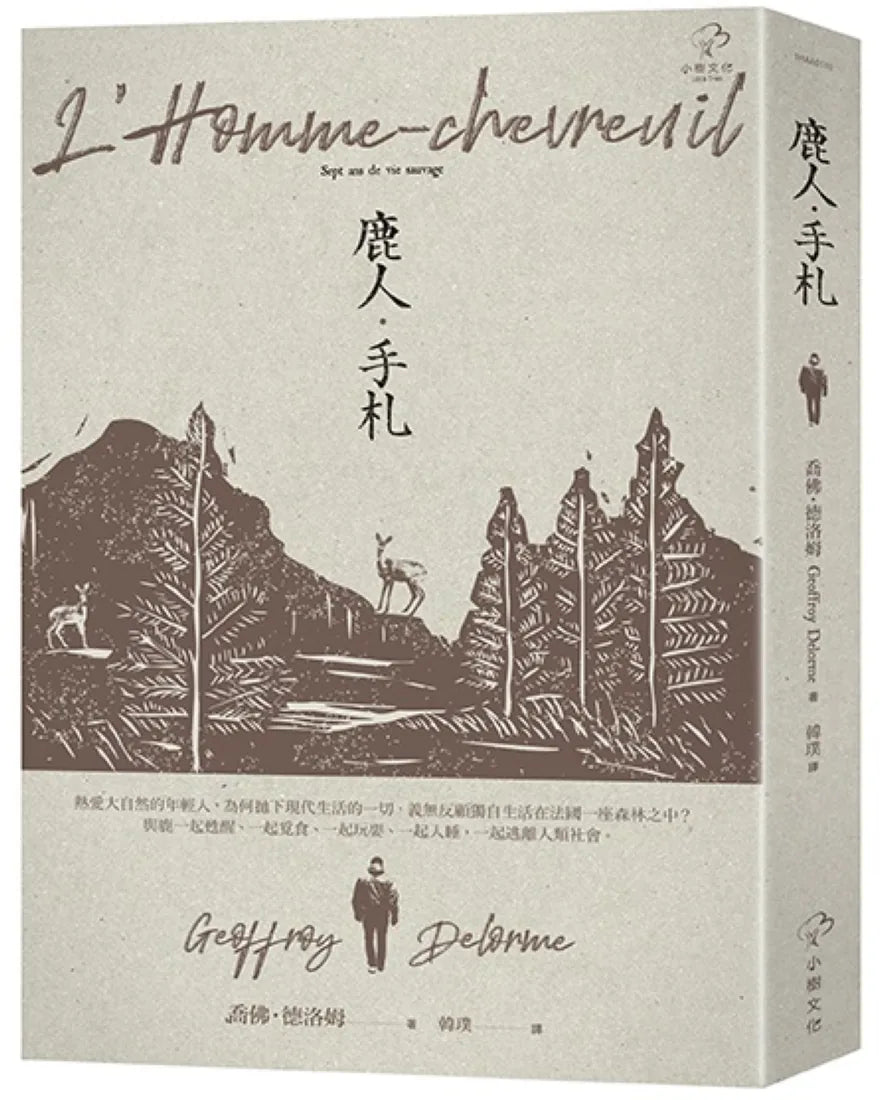 小樹文化
L'Homme-chevreuil
Sept ans de vie sauvage
鹿人·手札
熱愛大自然的年輕人、為何拋下現代生活的一切，義無反顧獨自生活在法國一座森林之中？
與鹿一起甦醒、一起覓食、一起玩耍、一起入睡，一起逃離人類社會。
Geoffroy Delorme
喬佛·德洛姆 著 韓璞 譯
鹿人·手札
喬佛·德洛姆 Geoffroy Delorme 著
韓璞 譯
小樹文化